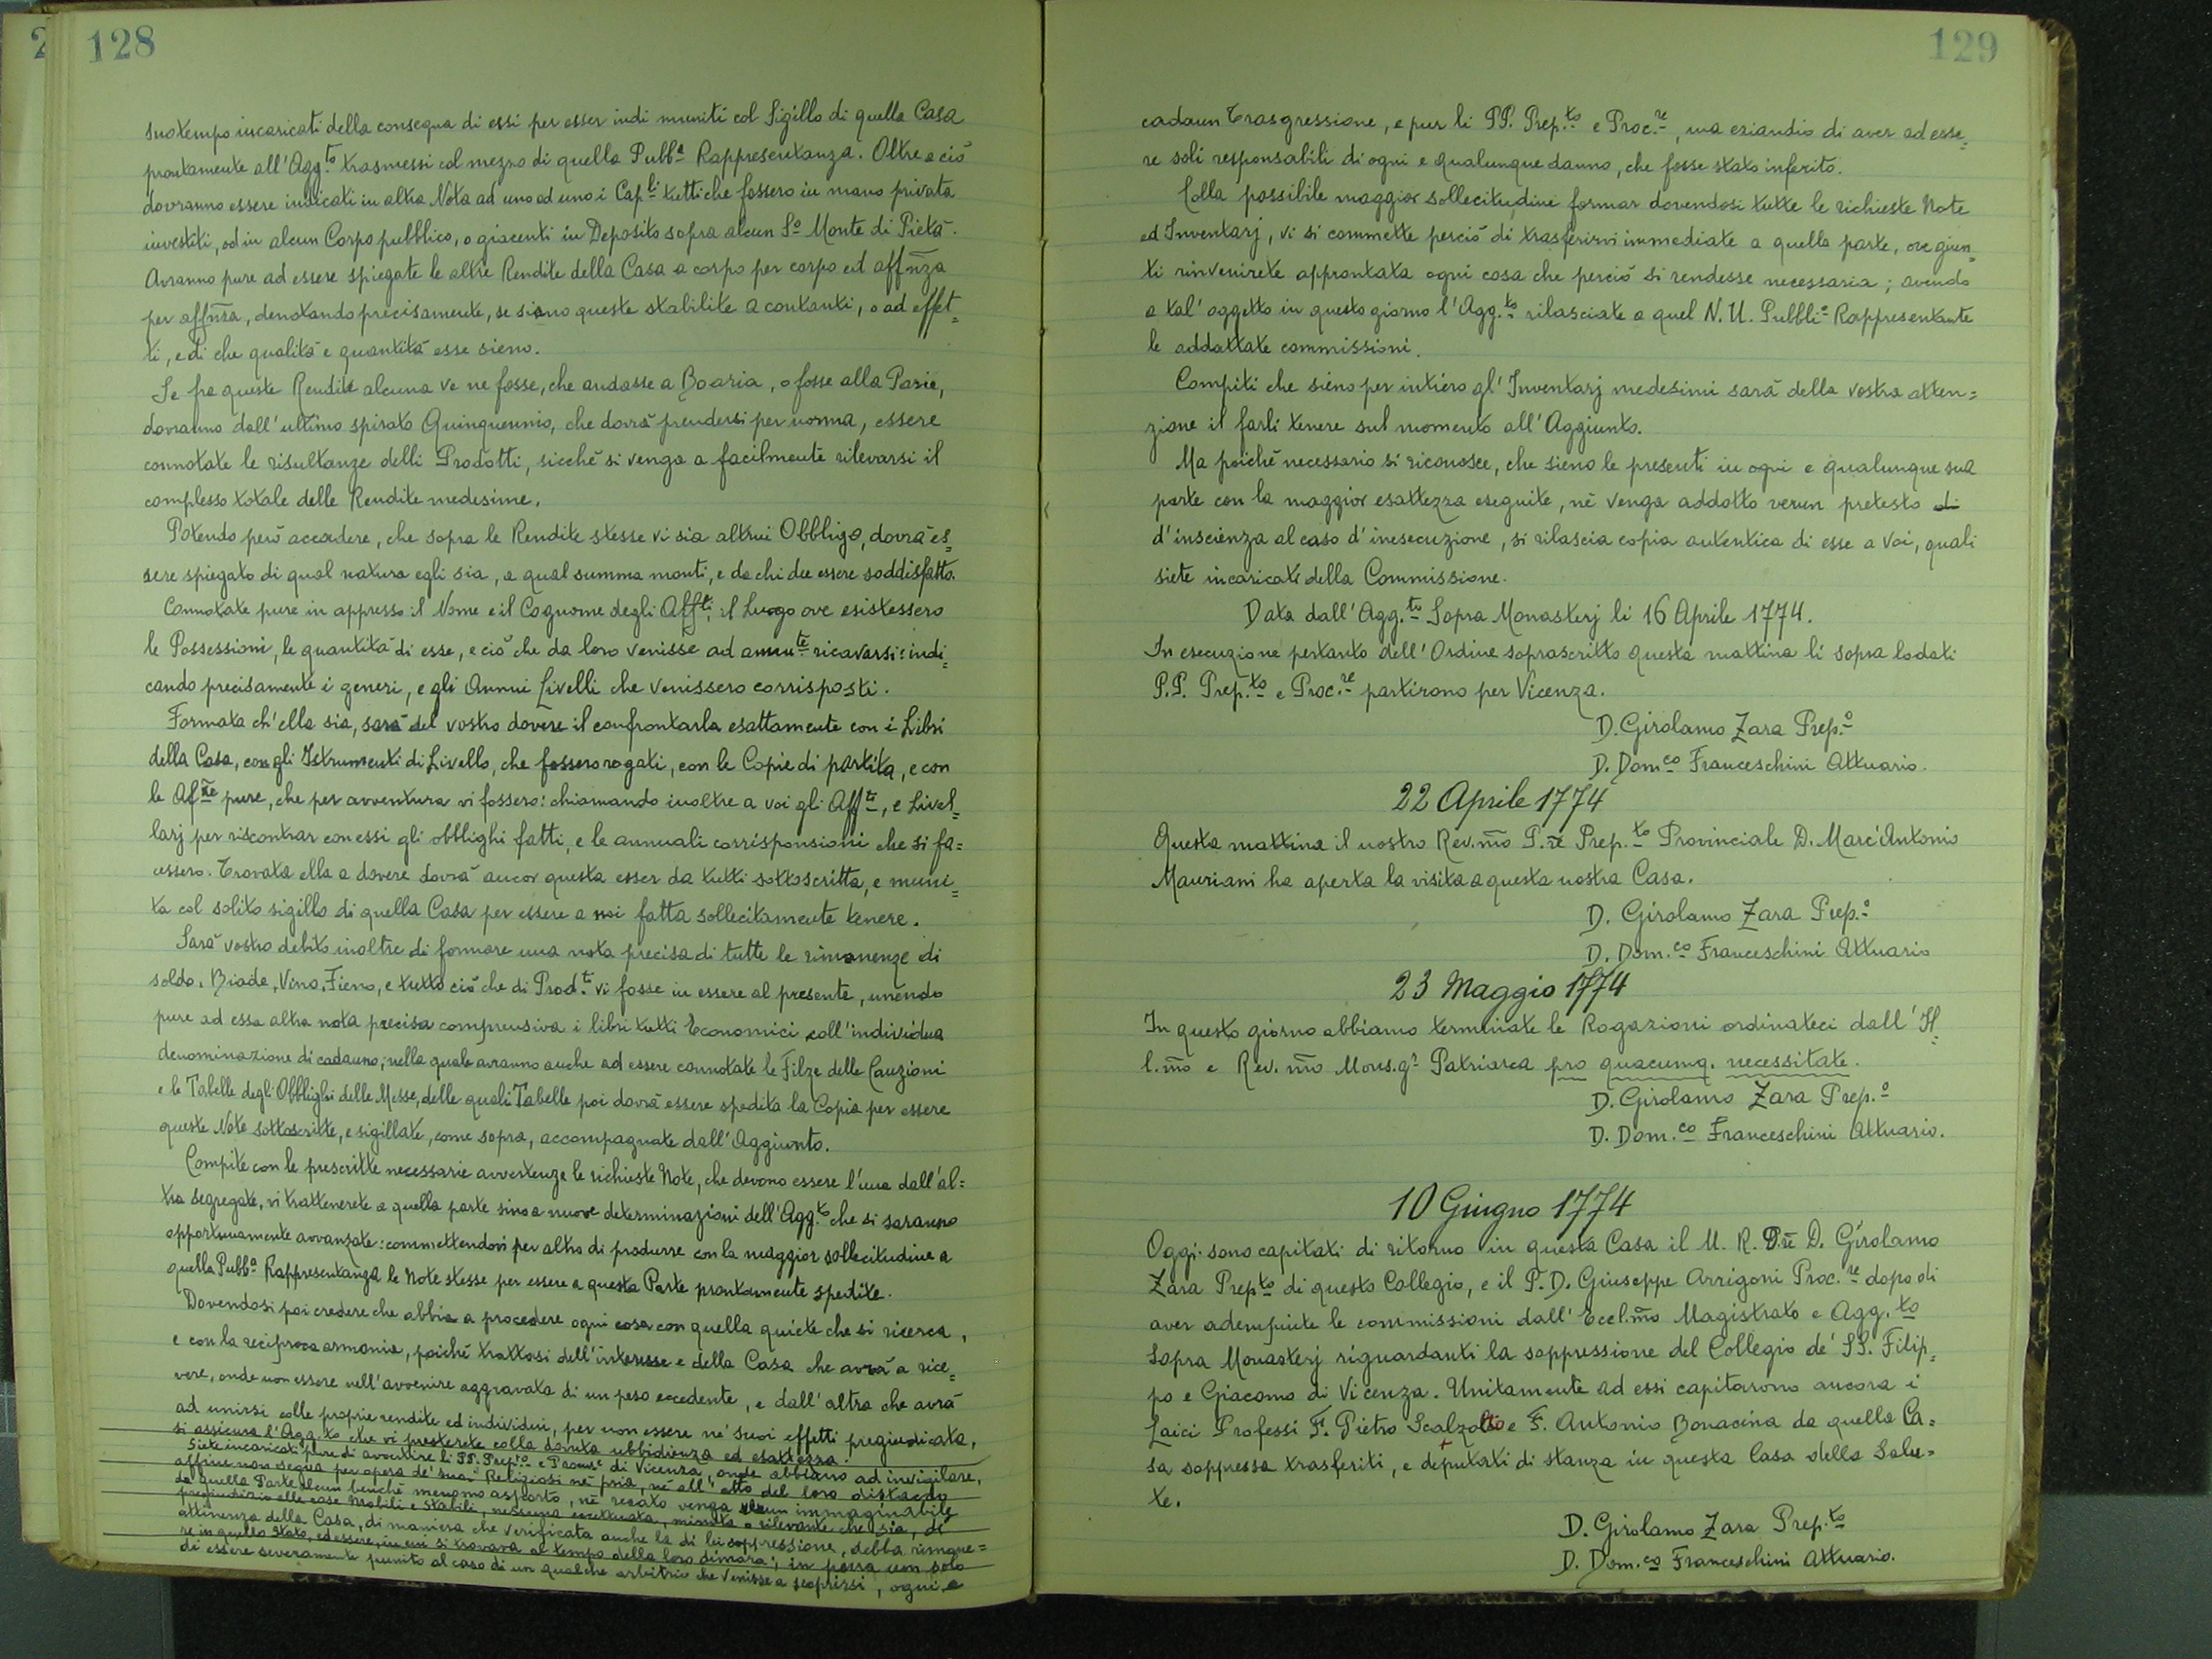 2
128
suo tempo incaricati della consegna di essi per esser indi muniti col Sigillo di quella Casa
prontamente all'Agg.to trasmessi col mezzo di quella Pubb.a Rappresentanza. Oltre a ciò
dovranno essere indicati in altra Nota ad uno ad uno i Cap.li tutti che fossero in mano privata
investiti, od in alcun Corpo pubblico, o giacenti in Deposito sopra alcun S.o Monte di Pietà.
Avranno pure ad essere spiegate le altre Rendite della Casa a corpo per corpo ed affnza
per affnza, denotando precisamente, se siano queste stabilite a contanti, o ad effet=
ti, e di che qualità e quantità esse sieno.
Se fra queste Rendite alcuna ve ne fosse, che andasse a Boaria, o fosse alla Parie,
dovranno dall'ultimo spirato Quinquennio, che dovrà prendersi per norma, essere
connotate le risultanze delli Prodotti, sicché si venga a facilmente rilevarsi il
complesso totale delle Rendite medesime.
Potendo però accadere, che sopra le Rendite stesse vi sia altrui Obbligo, dovrà es=
sere spiegato di qual natura egli sia, a qual summa monti, e da chi dee essere soddisfatto.
Connotate pure in appresso il Nome e il Cognome degli Aff.ti il Luogo ove esistessero
le Possessioni, le quantità di esse, e ciò che da loro venisse ad annu.te ricavarsi: indi=
cando precisamente i generi, e gli Annui Livelli che venissero corrisposti.
Formata ch'ella sia, sarà del vostro dovere il confrontarla esattamente con i Libri
della Casa, con gli Istrumenti di Livello, che fossero rogati, con le Copie di partita, e con
le Af.ze pure, che per avventura vi fossero: chiamando inoltre a voi gli Aff.ti, e Livel=
larj per riscontrar con essi gli obblighi fatti, e le annuali corrisponsioni che si fa=
cessero. Trovata ella a dovere dovrà ancor questa esser da tutti sottoscritta, e muni=
ta col solito sigillo di quella Casa per essere a noi fatta sollecitamente tenere.
Sarà vostro debito inoltre di formare una nota precisa di tutte le rimanenze di
soldo, Biade, Vino, Fieno, e tutto ciò che di Prod.ti vi fosse in essere al presente, unendo
pure ad essa altra nota precisa comprensiva i libri tutti Economici coll'individua
denominazione di cadauno; nella quale avranno anche ad essere connotate le Filze delle Cauzioni
e le Tabelle degli Obblighi delle Messe, delle quali Tabelle poi dovrà essere spedita la Copia per essere
queste Note sottoscritte, e sigillate, come sopra, accompagnate dall'Aggiunto.
Compite con le prescritte necessarie avvertenze le richieste Note, che devono essere l'una dall'al=
tra segregate, vi tratterete a quella parte sino a nuove determinazioni dell'Agg.to che si saranno
opportunamente avvanzate: commettendovi per altro di produrre con la maggior sollecitudine a
quella Pubb.a Rappresentanza le Note stesse per essere a questa Parte prontamente spedite.
Dovendosi poi credere che abbia a procedere ogni cosa con quella quiete che si ricerca,
e con la reciproca armonia, poiché trattasi dell'interesse e della Casa che avrà a rice=
vere, onde non essere nell'avvenire aggravata di un peso eccedente, e dall'altra che avrà
ad unirsi colle proprie rendite ed individui, per non essere né suoi effetti pregiudicata,
si assicura l'Agg.to che vi presterete colla dovuta ubbidienza ed esattezza.
Siete incaricati pure di avvertire li PP. Prep.to e Procur.e di Vicenza, onde abbiano ad invigilare,
affine non segua per opera de' suoi Religiosi né pria, né all'atto del loro distacco
da quella Parte alcun benché menomo asporto, né recato venga alcun immaginabile
pregiudizio alle case mobili e stabili, nessuna eccettuata, minuta o rilevante che sia, di
attinenza della Casa, di maniera che verificata anche la di lei soppressione, debba rimane=
re in quello stato, ed essere, in cui si trovava al tempo della loro dimora; in pena non solo
di essere severamente punito al caso di un qualche arbitrio che venisse a scoprirsi, ogni e
129
cadaun Trasgressione, e pur li PP. Prep.to e Proc.re, ma eziandio di aver ad esse=
re soli responsabili di ogni e qualunque danno, che fosse stato inferito.
Colla possibile maggior sollecitudine formar dovendosi tutte le richieste Note
ed Inventarj, vi si commette perciò di trasferirvi immediate a quella parte, ove giun=
ti rinvenirete approntata ogni cosa che perciò si rendesse necessaria; avendo
a tal'oggetto in questo giorno l'Agg.to rilasciate a quel N. U. Pubbli.o Rappresentante
le addattate commissioni.
Compiti che sieno per intiero gl'Inventarj medesimi sarà della vostra atten=
zione il farli tenere sul momento all'Aggiunto.
Ma poiché necessario si riconosce, che sieno le presenti in ogni e qualunque sua
parte con la maggior esattezza eseguite, né venga addotto verun pretesto di
d'inscienza al caso d'inesecuzione, si rilascia copia autentica di esse a Voi, quali
siete incaricati della Commissione.
Data dall'Agg.to Sopra Monasterj li 16 Aprile 1774.
In esecuzione pertanto dell'Ordine soprascritto questa mattina li sopra lodati
P.P. Prep.to e Proc.re partirono per Vicenza.
D. Girolamo Zara Prep.o
D. Dom.co Franceschini Attuario.
22 Aprile 1774
Questa mattina il nostro Rev.mo P.re Prep.to Provinciale D. Marc'Antonio
Mauriani ha aperta la visita a questa nostra Casa.
D. Girolamo Zara Prep.o
D. Dom.co Franceschini Attuario
23 Maggio 1774
In questo giorno abbiamo terminate le Rogazioni ordinateci dall'Il=
l.mo e Rev.mo Mons.gr Patriarca pro quacumq. necessitate.
D. Girolamo Zara Prep.o
D. Dom.co Franceschini Attuario.
10 Giugno 1774
Oggi sono capitati di ritorno in questa Casa il M. R. P.re D. Girolamo
Zara Prep.to di questo Collegio, e il P. D. Giuseppe Arrigoni Proc.re dopo di
aver adempiute le commissioni dall'Eccl.mo Magistrato e Agg.to
Sopra Monasterj riguardanti la soppressione del Collegio de' SS. Filip=
po e Giacomo di Vicenza. Unitamente ad essi capitarono ancora i
Laici Professi F. Pietro Scalzotto e F. Antonio Bonacina da quella Ca=
sa soppressa trasferiti, e deputati di stanza in questa Casa della Salu=
te.
D. Girolamo Zara Prep.to
D. Dom.co Franceschini Attuario.